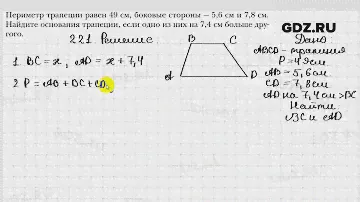 Периметр трапеции равен 49 см, боковые стороны — 5,6 см и 7,8 см.
Найдите основания трапеции, если одно из них на 7,4 см больше дру-
гого.
GDZ.RU
221 Решение.
1. BC = x, AD = x + 7,4
2 P = AB + BC + CD
B
C
A
D
Дано
ABCD - трапеция
P = 49см
AB = 5,6см
CD = 7,8см
AD на 7,4см > BC
Найти
BC и AD